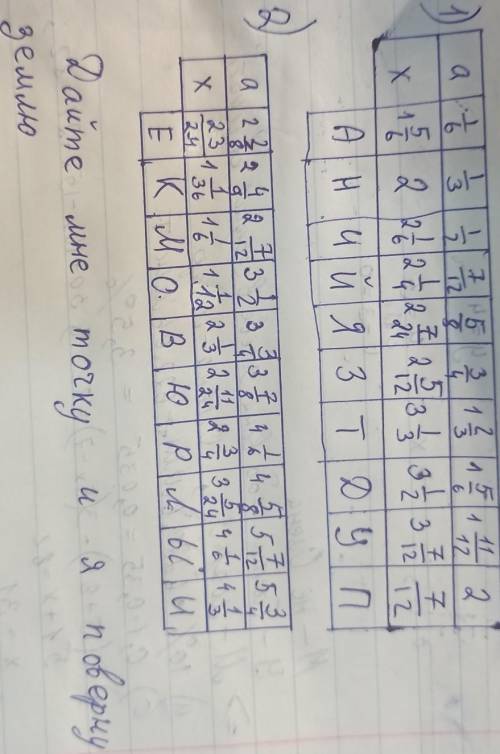 1)
a 1/6 1/3 1/2 7/12 5/8 3/4 1 2/3 1 5/6 1 11/12 2
x 1 5/6 2 2 1/6 2 1/4 2 7/24 2 5/12 3 1/3 3 1/2 3 7/12 7/12
А Н Ч Й Я З Т Д У П
2)
a 2 3/8 2 4/9 2 7/12 3 1/2 3 3/4 3 7/8 4 1/6 4 5/8 5 7/12 5 3/4
x 23/24 1 1/36 1 1/6 1 1/12 2 1/3 2 11/24 2 3/4 3 5/24 4 1/6 4 1/3
Е К М О В Ю Р Л Ы И
Дайте мне точку и я поверну
землю